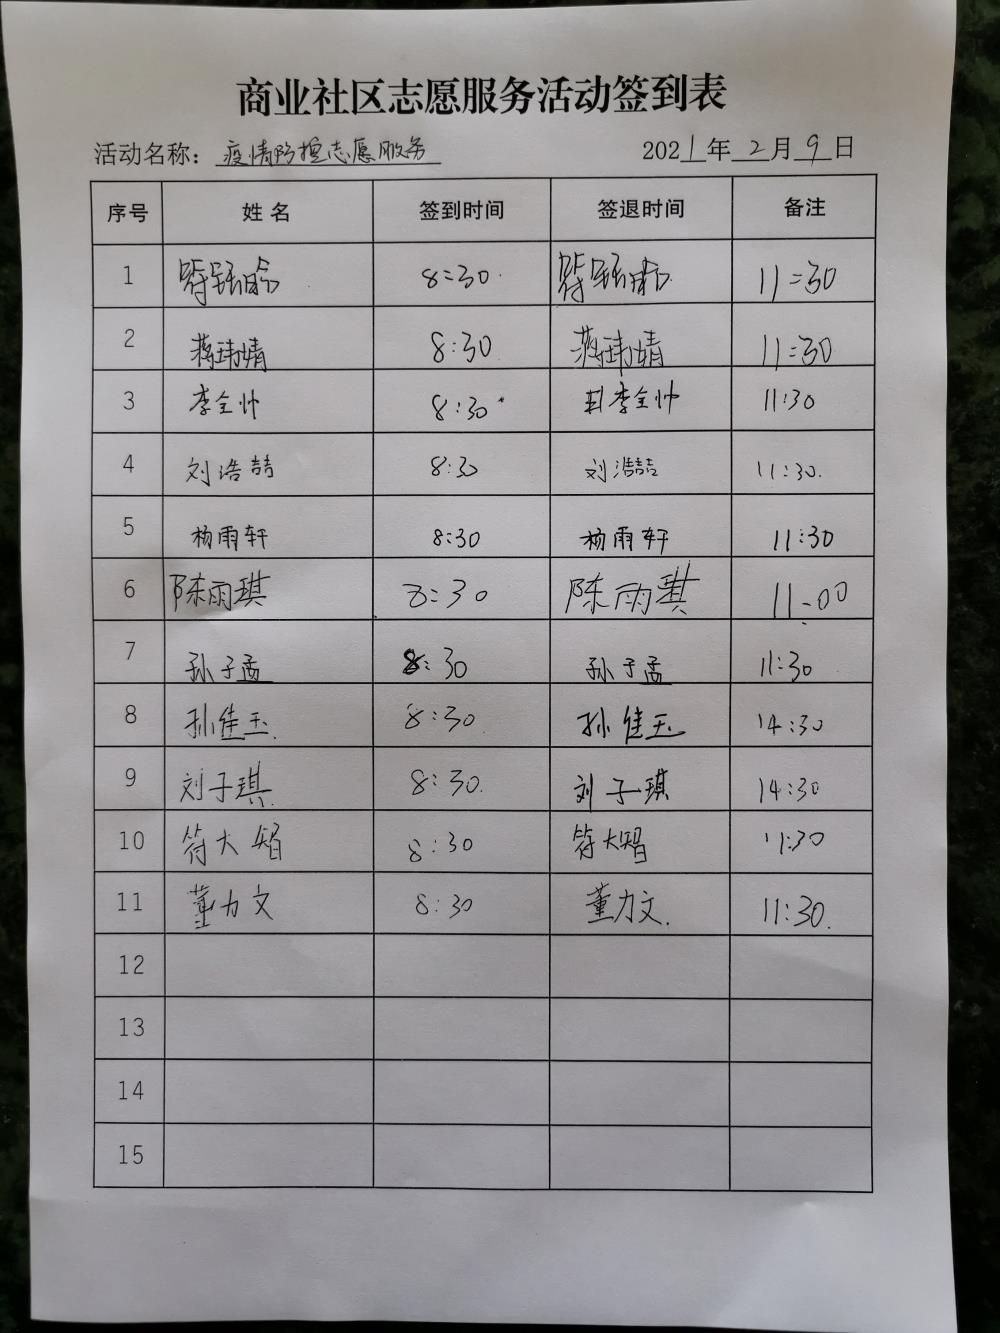 商业社区志愿服务活动签到表
活动名称：疫情防控志愿服务 2021年2月9日
序号 姓名 签到时间 签退时间 备注
1 8:30 11:30
2 蒋玮婧 8:30 蒋玮婧 11:30
3 李全帅 8:30 李全帅 11:30
4 刘浩喆 8:30 刘浩喆 11:30
5 杨雨轩 8:30 杨雨轩 11:30
6 陈雨琪 8:30 陈雨琪 11:00
7 孙子孟 8:30 孙子孟 11:30
8 孙佳玉 8:30 孙佳玉 14:30
9 刘子琪 8:30 刘子琪 14:30
10 符大智 8:30 符大智 11:30
11 董力文 8:30 董力文 11:30
12
13
14
15